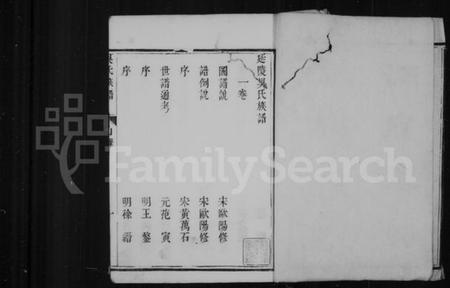 延陵吳氏族譜
一卷
圖譜說 宋歐陽修
譜例說 宋歐陽修
序 宋黃萬石
世譜通考 元范寅
序 明王鏊
序 明徐溥
FamilySearch